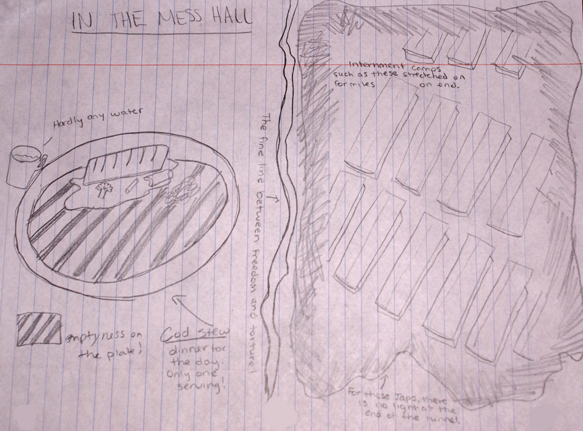 IN THE MESS HALL
Hardly any water
Internment camps
such as these stretched on
for miles on end.
The fine line between freedom and torture!
emptyness on
the plate!
Cod stew
dinner for
the day.
Only one
serving!
For these Japs, there
is no light at the
end of the tunnel.